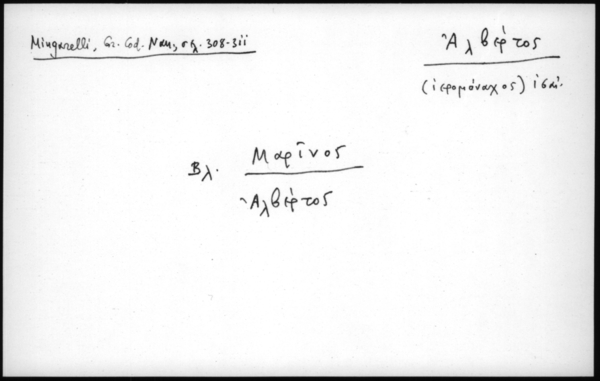 Mingarelli, Gr. Cod. Nan., σελ. 308-311
Ἀλβέρτος
(ἱερομόναχος) ις΄ αἰ.
Βλ. Μαρῖνος
Ἀλβέρτος